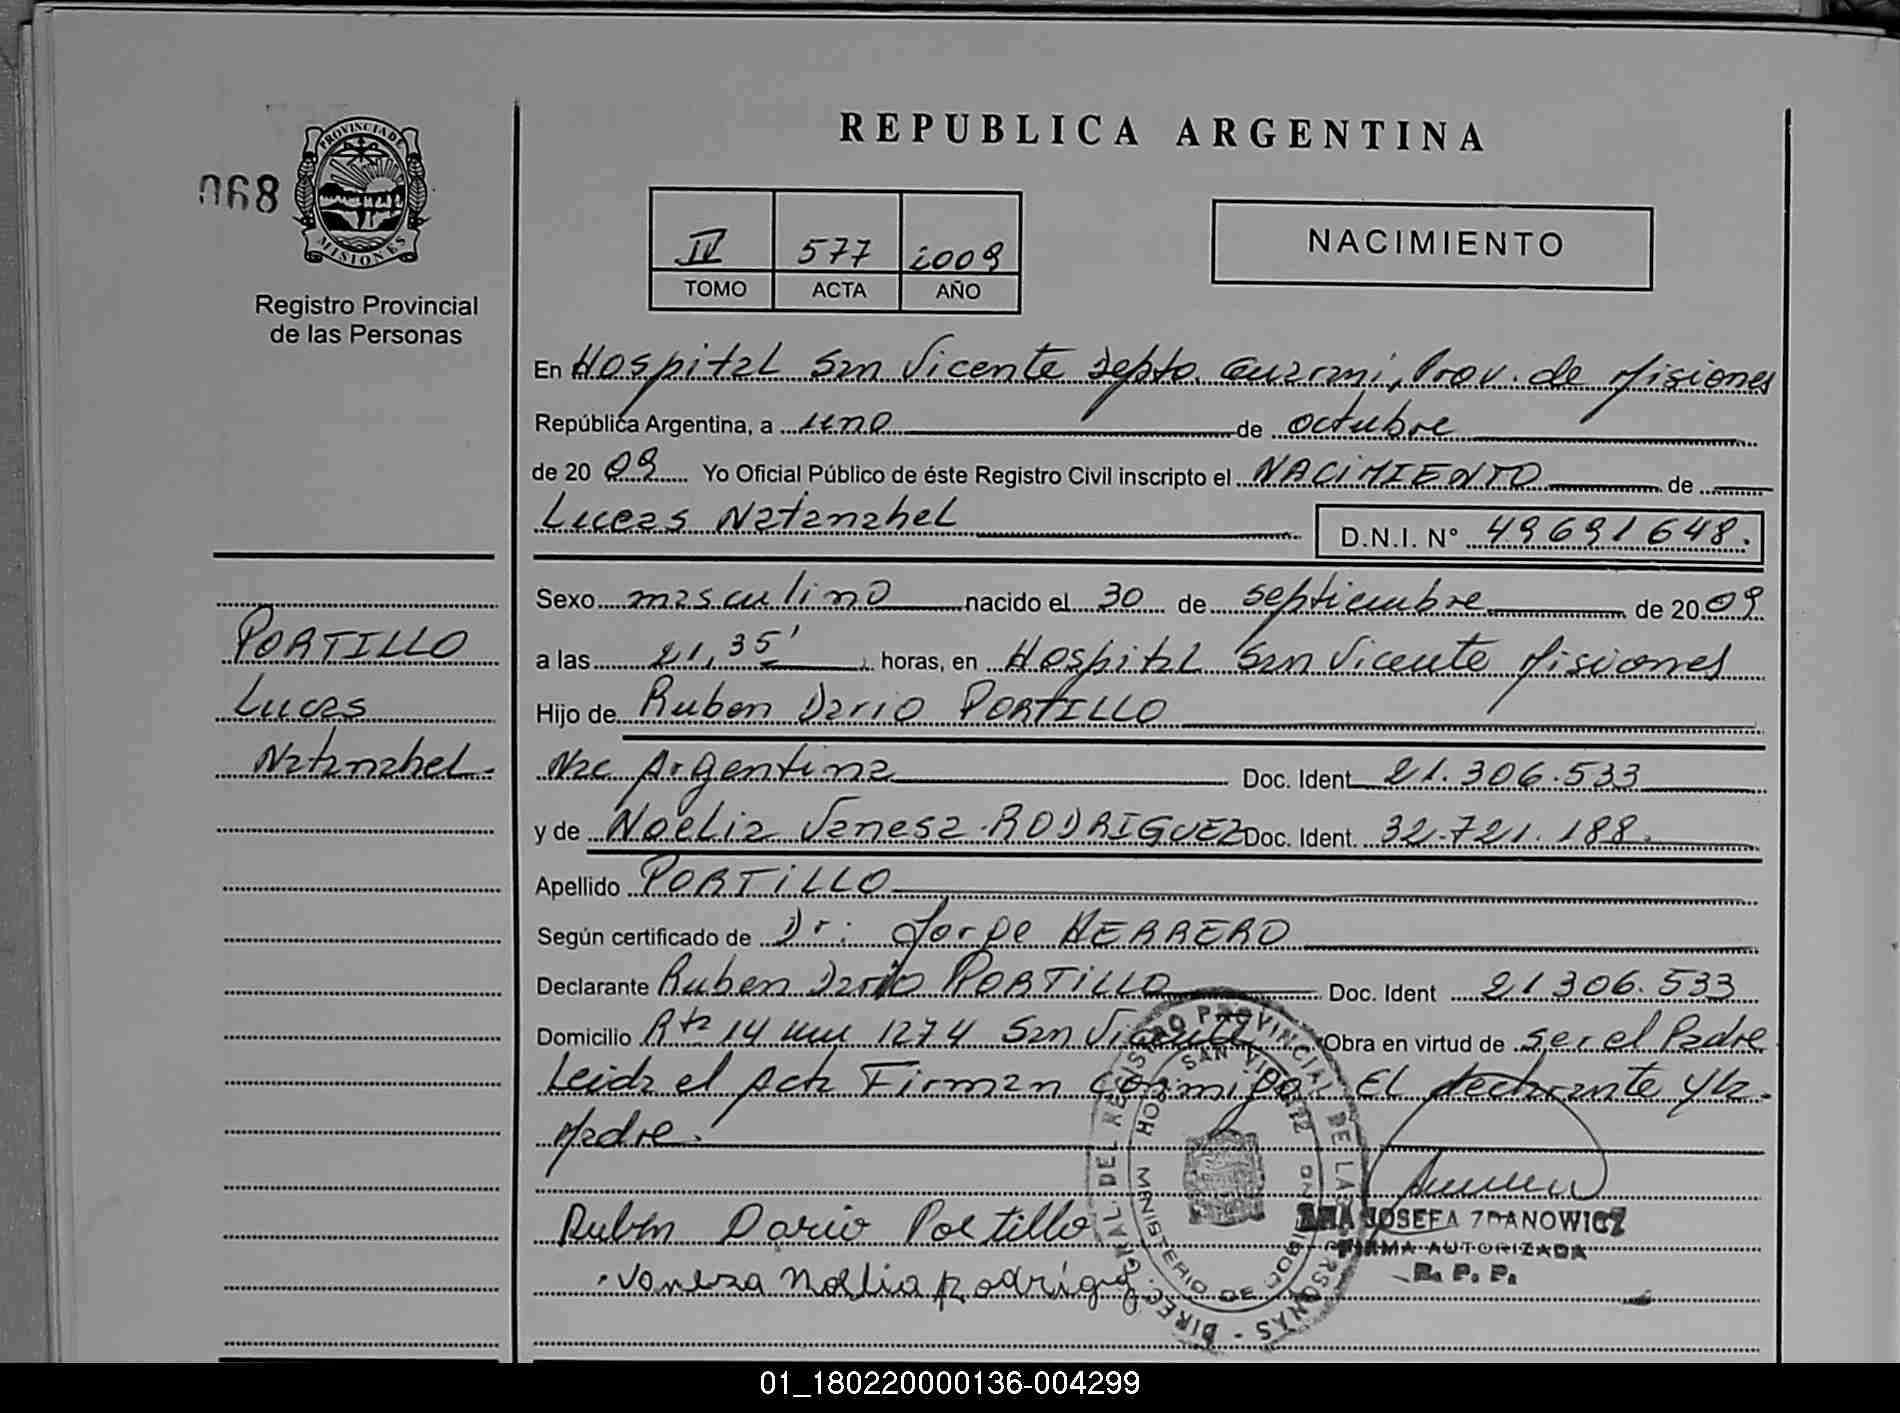 REPUBLICA ARGENTINA
068
PROVINCIA DE
MISIONES
Registro Provincial
de las Personas
IV 577 2009
TOMO ACTA AÑO
NACIMIENTO
En Hospital San Vicente Depto. Guarani, Prov. de Misiones
República Argentina, a uno de octubre
de 20 09 Yo Oficial Público de éste Registro Civil inscripto el NACIMIENTO de
Lucas Natanahel D.N.I. N° 49691648.
Sexo masculino nacido el 30 de septiembre de 20 09
a las 21,35' horas, en Hospital San Vicente Misiones
Hijo de Ruben Dario PORTILLO
Nac Argentina Doc. Ident. 21.306.533
y de Noelia Vanesa RODRIGUEZ Doc. Ident. 32.721.188.
Apellido PORTILLO
Según certificado de Dr: Jorge HERRERO
Declarante Ruben Dario PORTILLO Doc. Ident 21306.533
Domicilio Rta 14 km 1274 San Vicente Obra en virtud de ser el Padre
Leida el Acta Firman conmigo El declarante y la
Madre.
PORTILLO
Lucas
Natanahel.
Rubén Dario Portillo
Vanesa Noelia Rodrígu
DIREC. GRAL. DEL REGISTRO PROVINCIAL DE LAS PERSONAS
SAN VICENTE
MINISTERIO DE GOBIERNO
JOSEFA ZDANOWICZ
FIRMA AUTORIZADA
R. P. P.
01_180220000136-004299